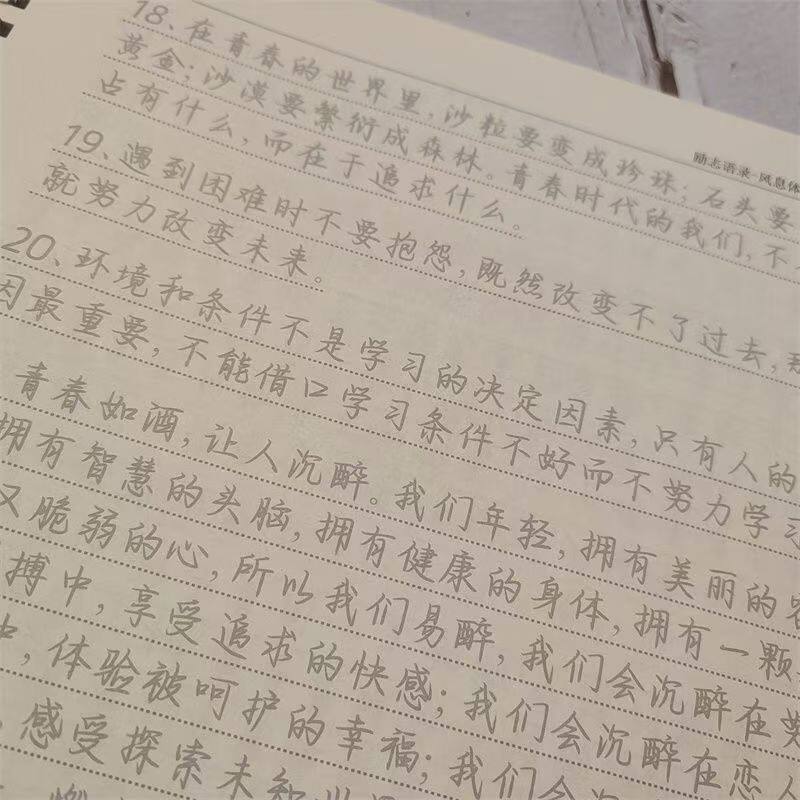 励志语录·风息体
18、在青春的世界里,沙粒要变成珍珠;石头要
黄金;沙漠要繁衍成森林。青春时代的我们,不
占有什么,而在于追求什么。
19、遇到困难时不要抱怨,既然改变不了过去,
就努力改变未来。
20、环境和条件不是学习的决定因素,只有人的
因最重要,不能借口学习条件不好而不努力学习
青春如酒,让人沉醉。我们年轻,拥有美丽的容
拥有智慧的头脑,拥有健康的身体,拥有一颗
又脆弱的心,所以我们易醉,我们会沉醉在
搏中,享受追求的快感;我们会沉醉在恋人
中,体验被呵护的幸福;我们会沉
感受探索未知世界